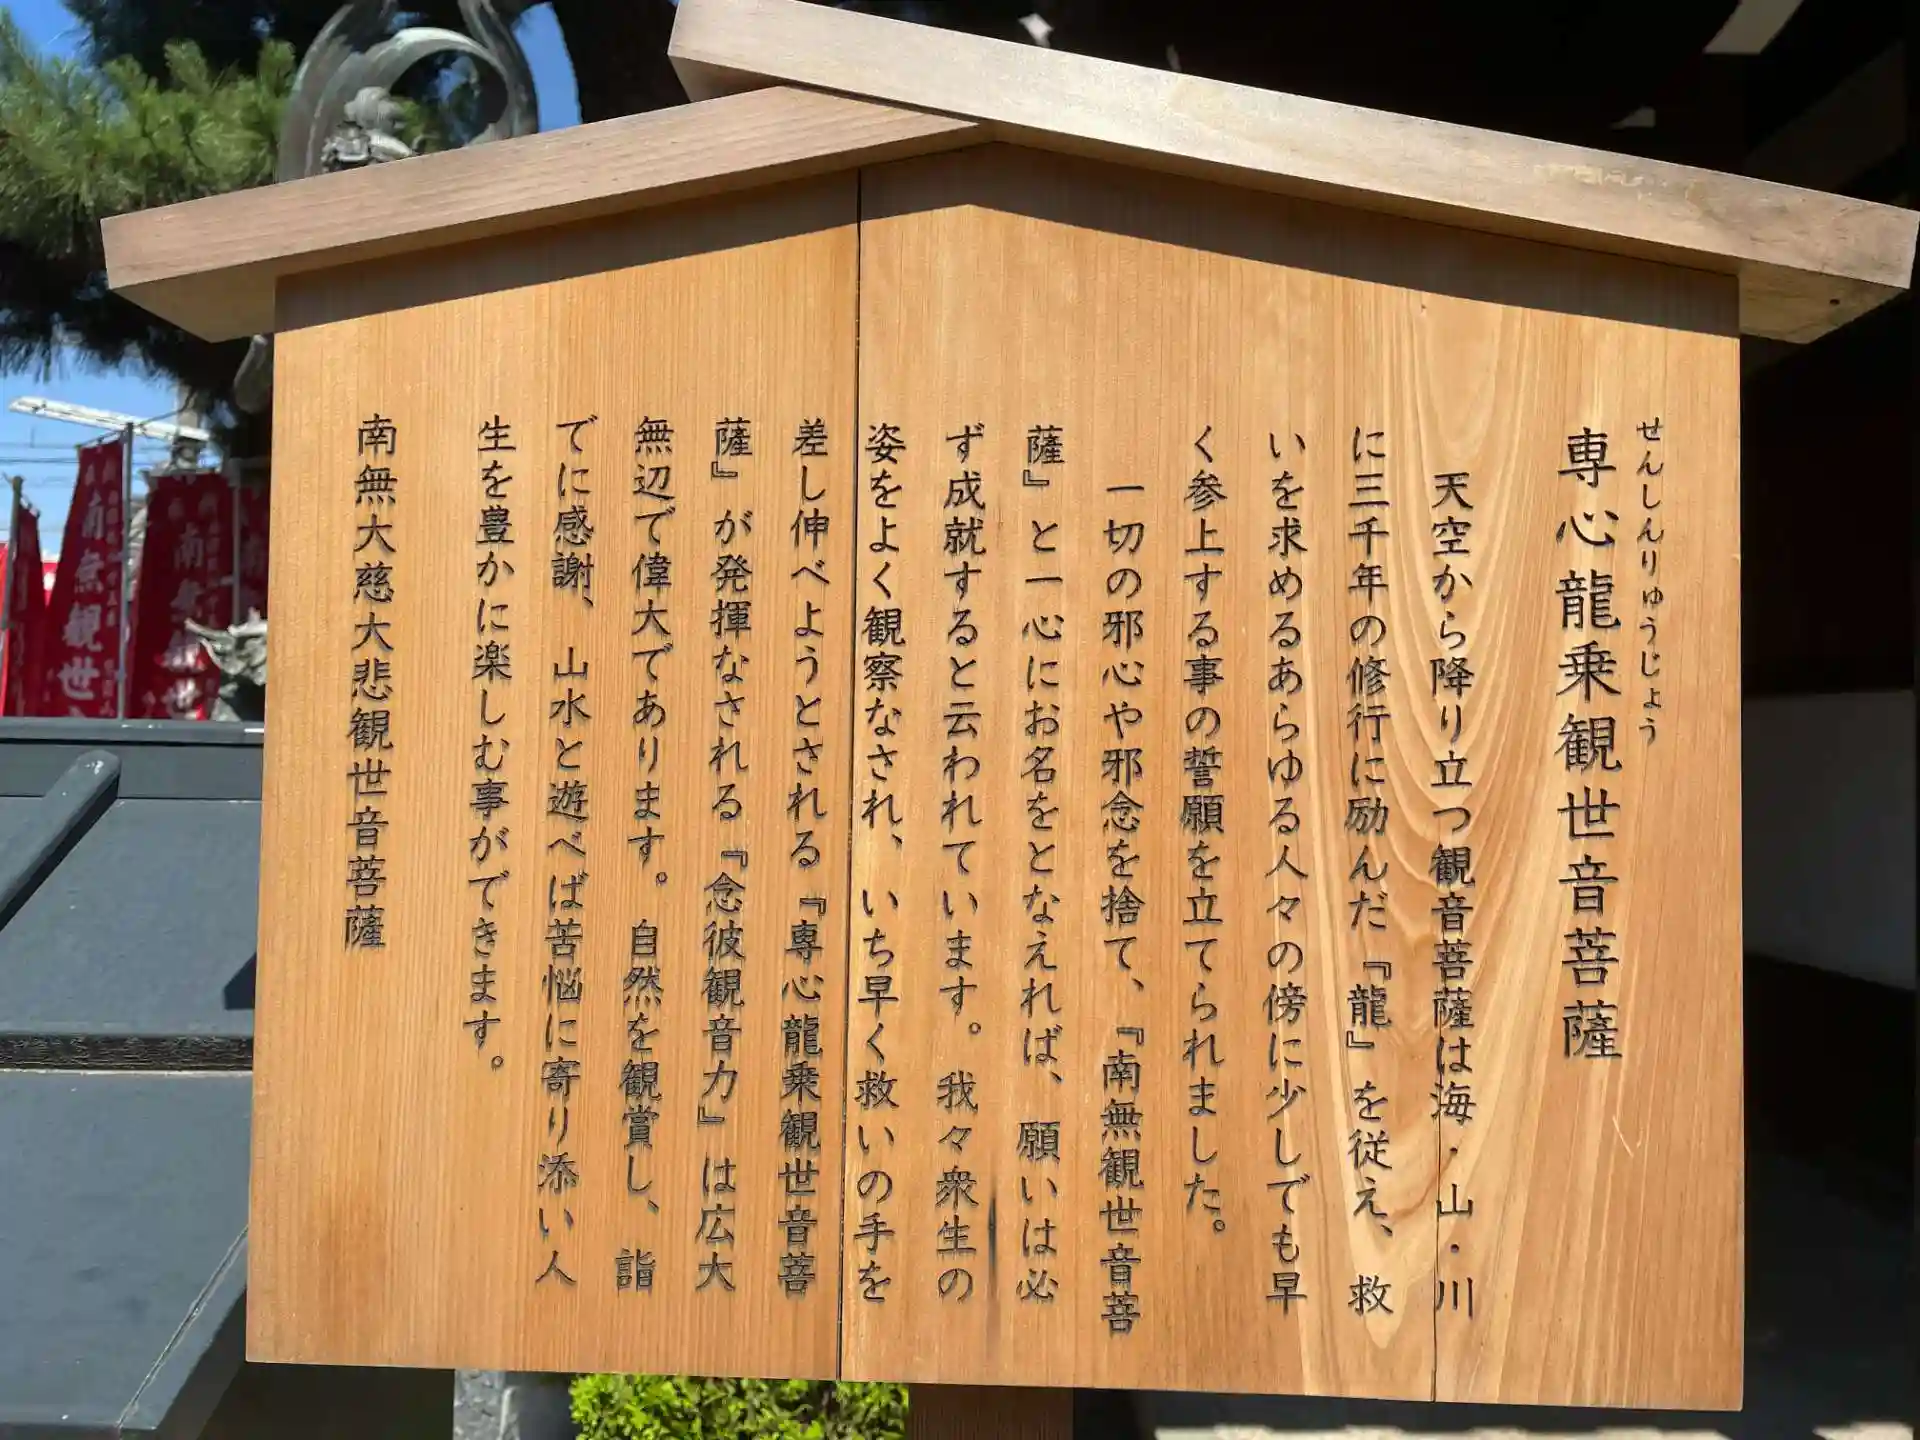 せんしんりゅうじょう
専心龍乗観世音菩薩
天空から降り立つ観音菩薩は海・山・川
に三千年の修行に励んだ『龍』を従え、救
いを求めるあらゆる人々の傍に少しでも早
く参上する事の誓願を立てられました。
一切の邪心や邪念を捨て、『南無観世音菩
薩』と一心にお名をとなえれば、願いは必
ず成就すると云われています。我々衆生の
姿をよく観察なされ、いち早く救いの手を
差し伸べようとされる『専心龍乗観世音菩
薩』が発揮なされる『念彼観音力』は広大
無辺で偉大であります。自然を観賞し、詣
でに感謝、山水と遊べば苦悩に寄り添い人
生を豊かに楽しむ事ができます。
南無大慈大悲観世音菩薩
南無観世
南無観世